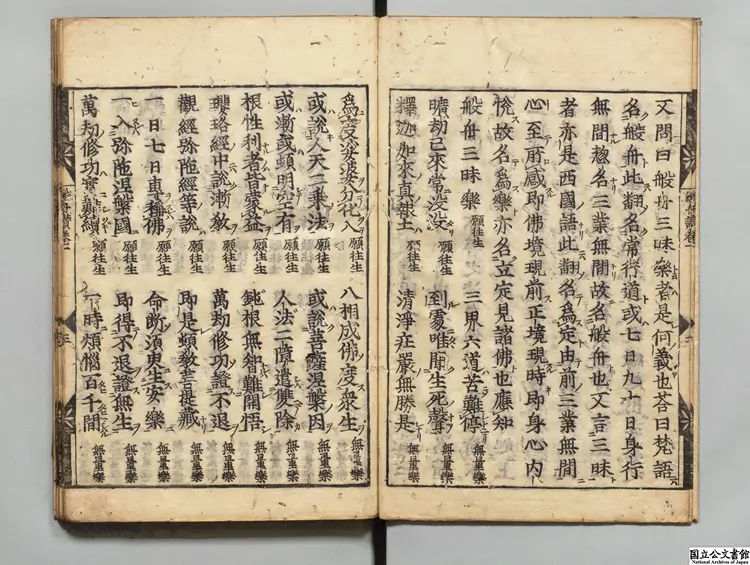 又問曰般舟三昧樂者是何義也荅曰梵語
名般舟此翻名常行道或七日九十日身行
無間揔名三業無間故名般舟也又言三昧
者亦是西國語此翻名爲定由前三業無間
心至所感即佛境現前正境現時即身心内
悅故名爲樂亦名立定見諸佛也應知
般舟三昧樂 願往生 三界六道苦難停 無量樂
曠劫已來常沒沒 願往生 到處唯聞生死聲 無量樂
釋迦如來真報土 願往生 清淨莊嚴無勝是 無量樂
爲度娑婆分化入 願往生 八相成佛度衆生 無量樂
或說人天二乘法 願往生 或說菩薩涅槃因 無量樂
或漸或頓明空有 願往生 人法二障遣雙除 無量樂
根性利者皆蒙益 願往生 鈍根無智難開悟 無量樂
瓔珞經中說漸教 願往生 萬劫修功證不退 無量樂
觀經弥陁經等說 願往生 即是頓教菩提藏 無量樂
一日七日專稱佛 願往生 命斷須臾生安樂 無量樂
一入弥陁涅槃國 願往生 即得不退證無生 無量樂
萬劫修功實難續 願往生 一時煩惱百千間 無量樂
国立公文書館
National Archives of Japan